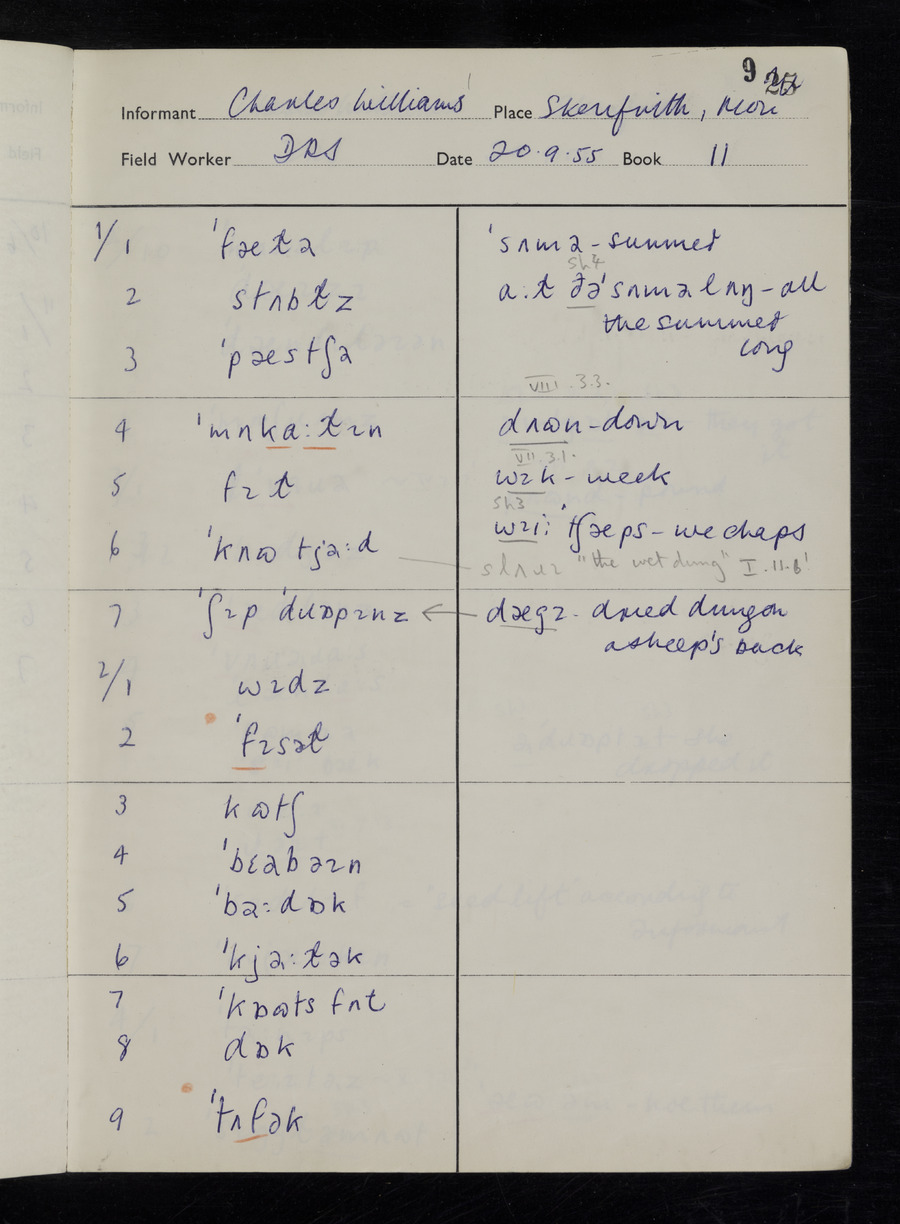 9
Informant Charles Williams Place Skenfrith, Mon
Field Worker DRS Date 20.9.55 Book 11
1/1 ˈfæɫə ˈsʌmə - summer
sh4
2 stʌbɫz a:ɫ ðəˈsʌmə lʌŋ - all
the summer
long
3 ˈpæstʃə
VIII.3.3.
4 ˈmʌka:ɫɪn dʌʊn - down
VII.3.1.
5 fɪɫ wɪk - week
sh3
6 ˈkʌʊ tjə:d wɪi: ˈtʃæps - we chaps
"the wet dung" I.11.6
7 ˈʃɪp ˈdɹɒpɪnz ← dægz - dried dung on
a sheep's back
2/1 wɪdz
2 ˈfɪsəɫ
3 kʊtʃ
4 ˈbɛəbəɪn
5 ˈbə:dɒk
6 ˈkjə:ɫək
7 ˈkɒʊts fʌt
8 dɒk
9 ˈtʌfək